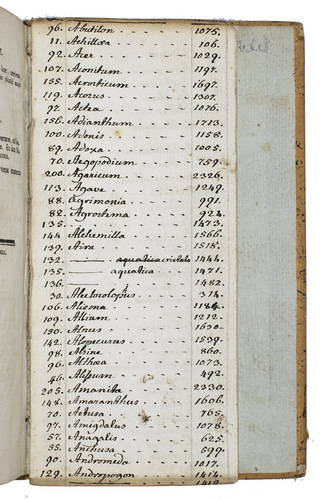 96. Abutilon 1075.
11. Achillæa 106.
92. Acer 1029.
107. Aconitum 1197.
155. Acrosticum 1697.
119. Acorus 1307.
97. Actea 1076.
156. Adianthum 1713.
100. Adonis 1158.
89. Adoxa 1005.
70. Aegopodium 759.
200. Agaricum 2326.
113. Agave 1249.
88. Agrimonia 991.
82. Agrostema 924.
135. 1473.
144. Alchemilla 1566.
139. Aira 1515.
132. ——— aquatica cristata 1444.
135. ——— aquatica 1471.
136. 1482.
30. Alectorolophus 314.
106. Alisma 1184.
109. Allium 1212.
150. Alnus 1630.
142. Alopecurus 1539.
98. Alsine 860.
96. Althæa 1073.
46. Alissum 492.
205. Amanita 2330.
148. Amaranthus 1606.
70. Aethusa 765.
97. Amigdalus 1078.
57. Anagalis 625.
55. Anchusa 599.
90. Andromeda 1017.
129. Andropogon 1414.